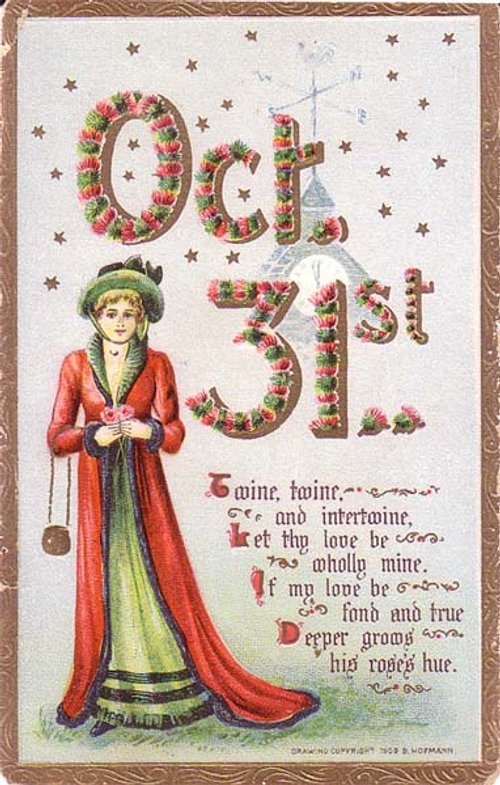 W N
E
Oct.
31st.
Twine, twine,
and intertwine,
Let thy love be
wholly mine.
If my love be
fond and true
Deeper grows
his rose's hue.
DRAWING COPYRIGHT 1909 B. HOFMANN